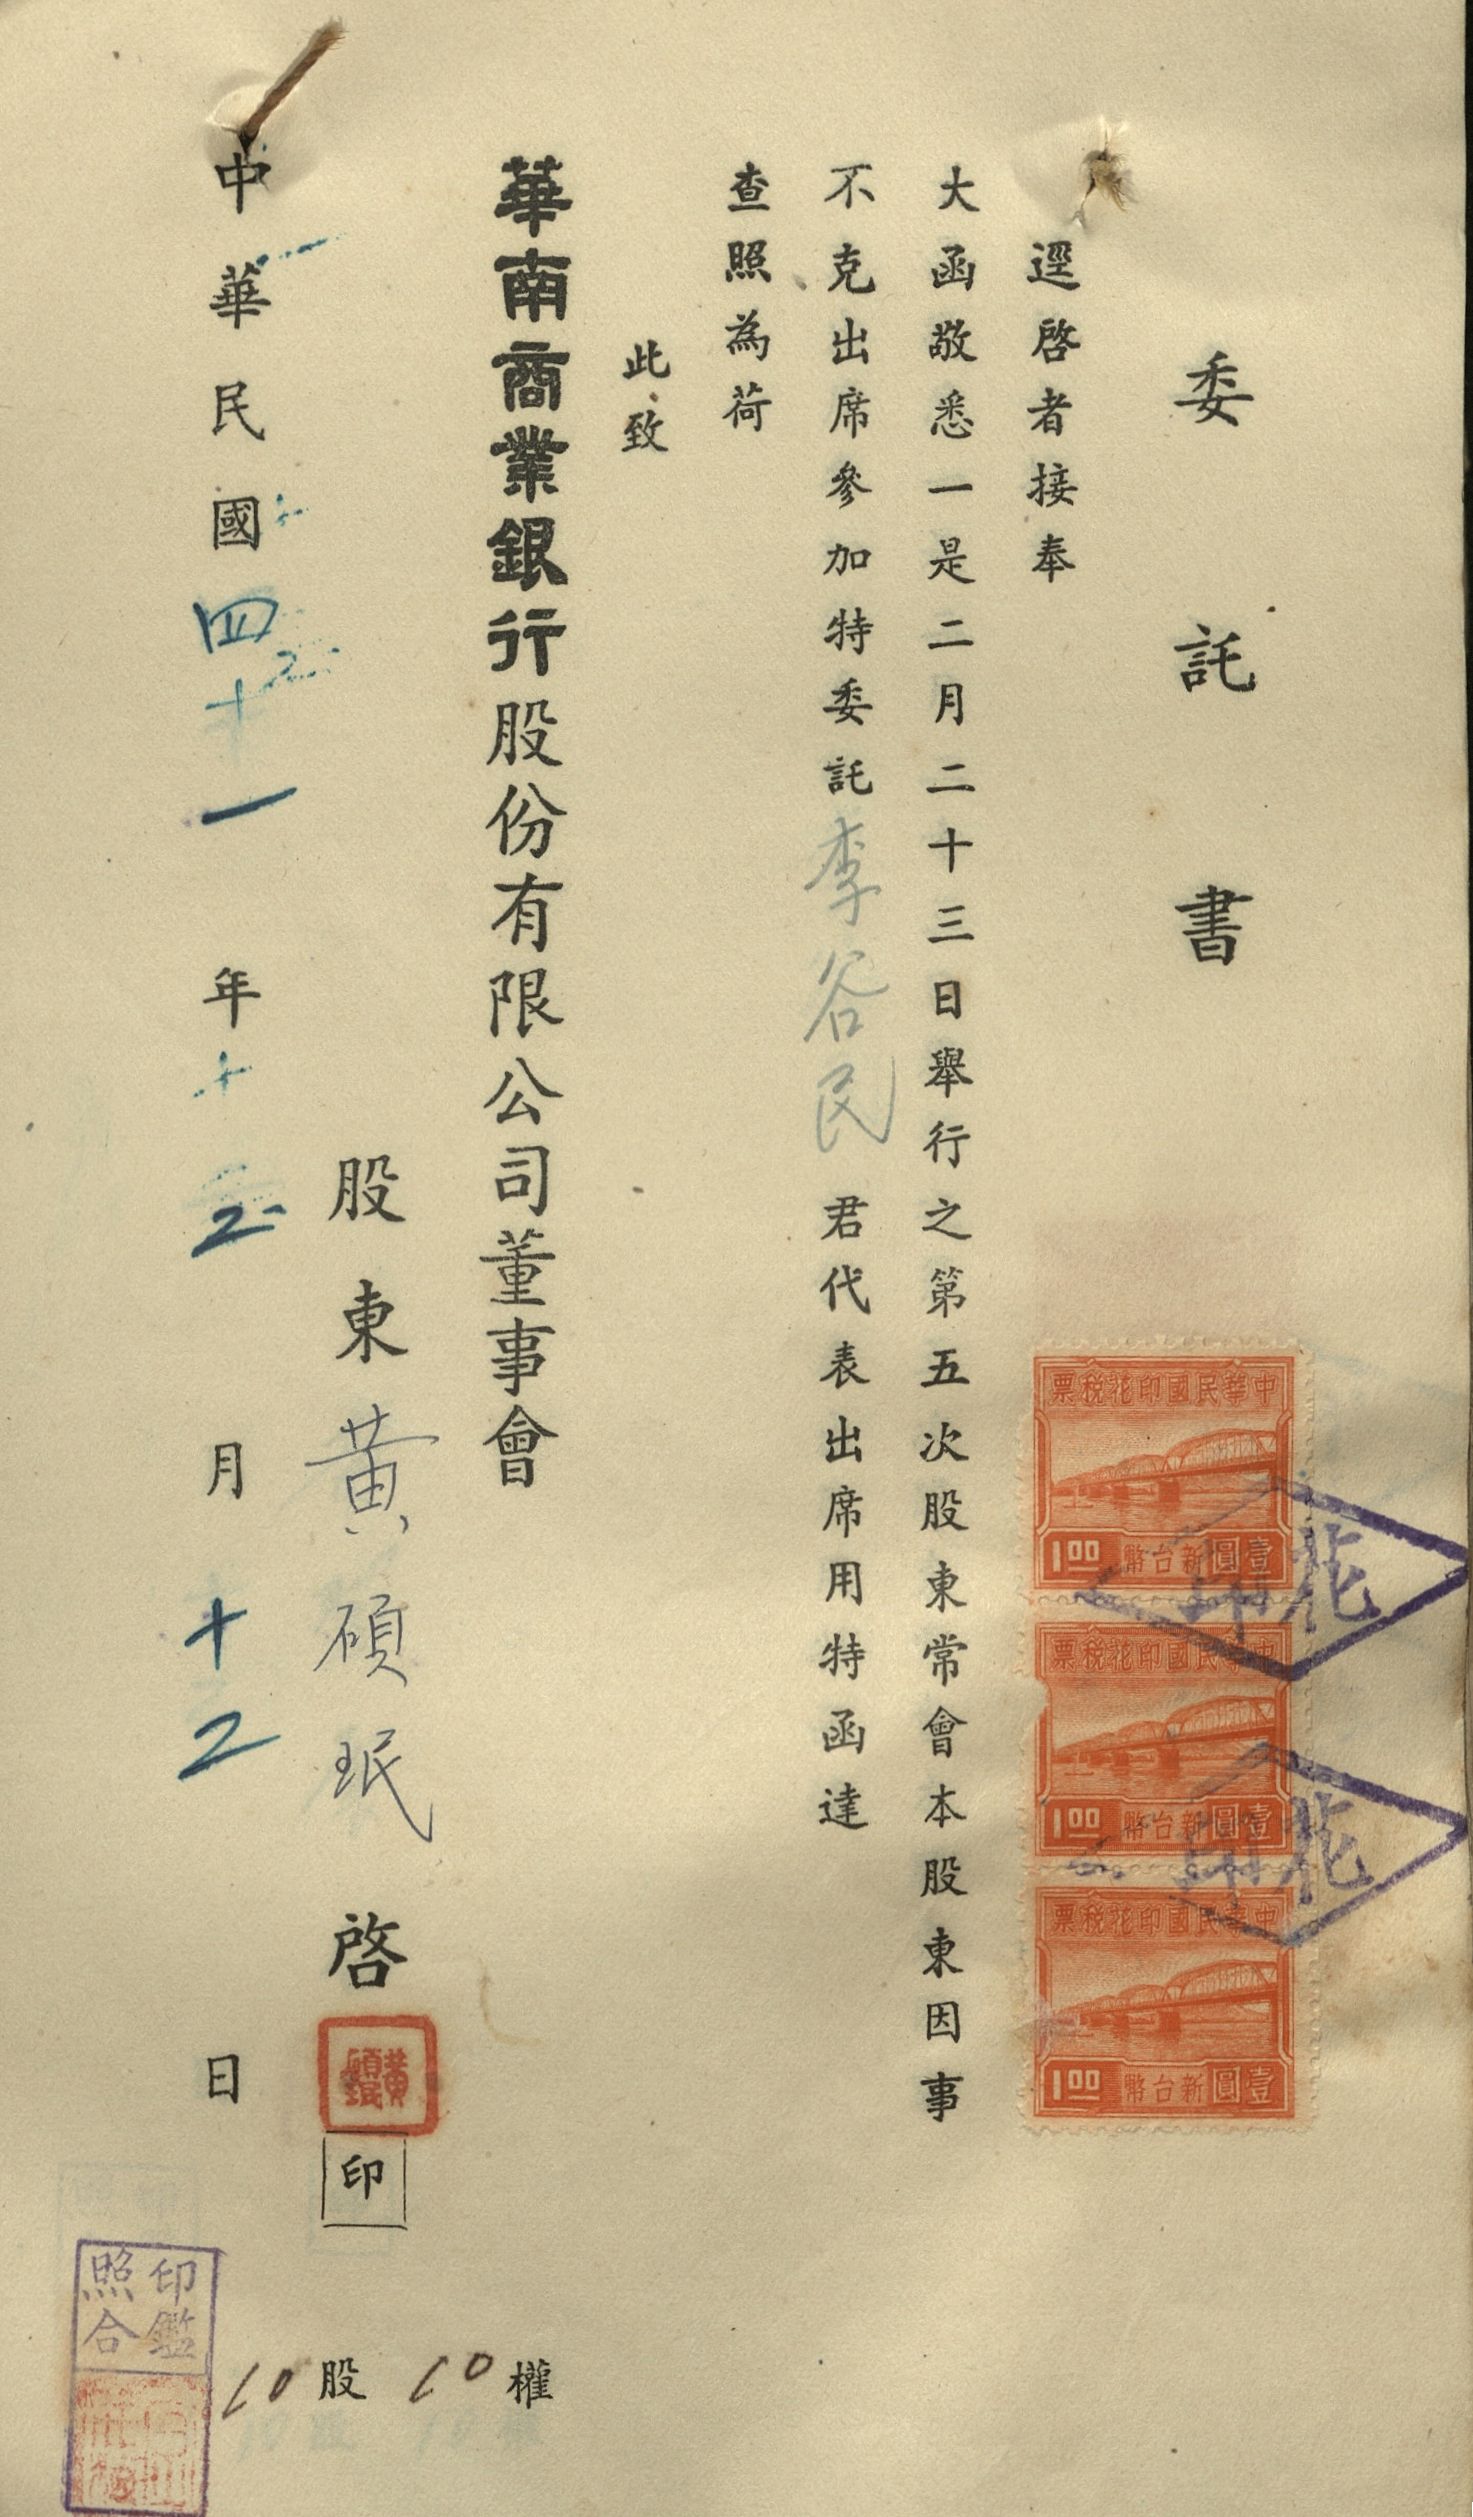 委託書
逕啓者接奉
大函敬悉一是二月二十三日舉行之第五次股東常會本股東因事
不克出席參加特委託李谷民君代表出席用特函達
查照為荷
此致
華南商業銀行股份有限公司董事會
股東黃碩珉啓
印
中華民國四十一年2月十2日
10股10權
中華民國印花稅票
1.00 新台幣壹圓
中華民國印花稅票
1.00 新台幣壹圓
中華民國印花稅票
1.00 新台幣壹圓
印花
印花
黃碩珉
印鑑
照合